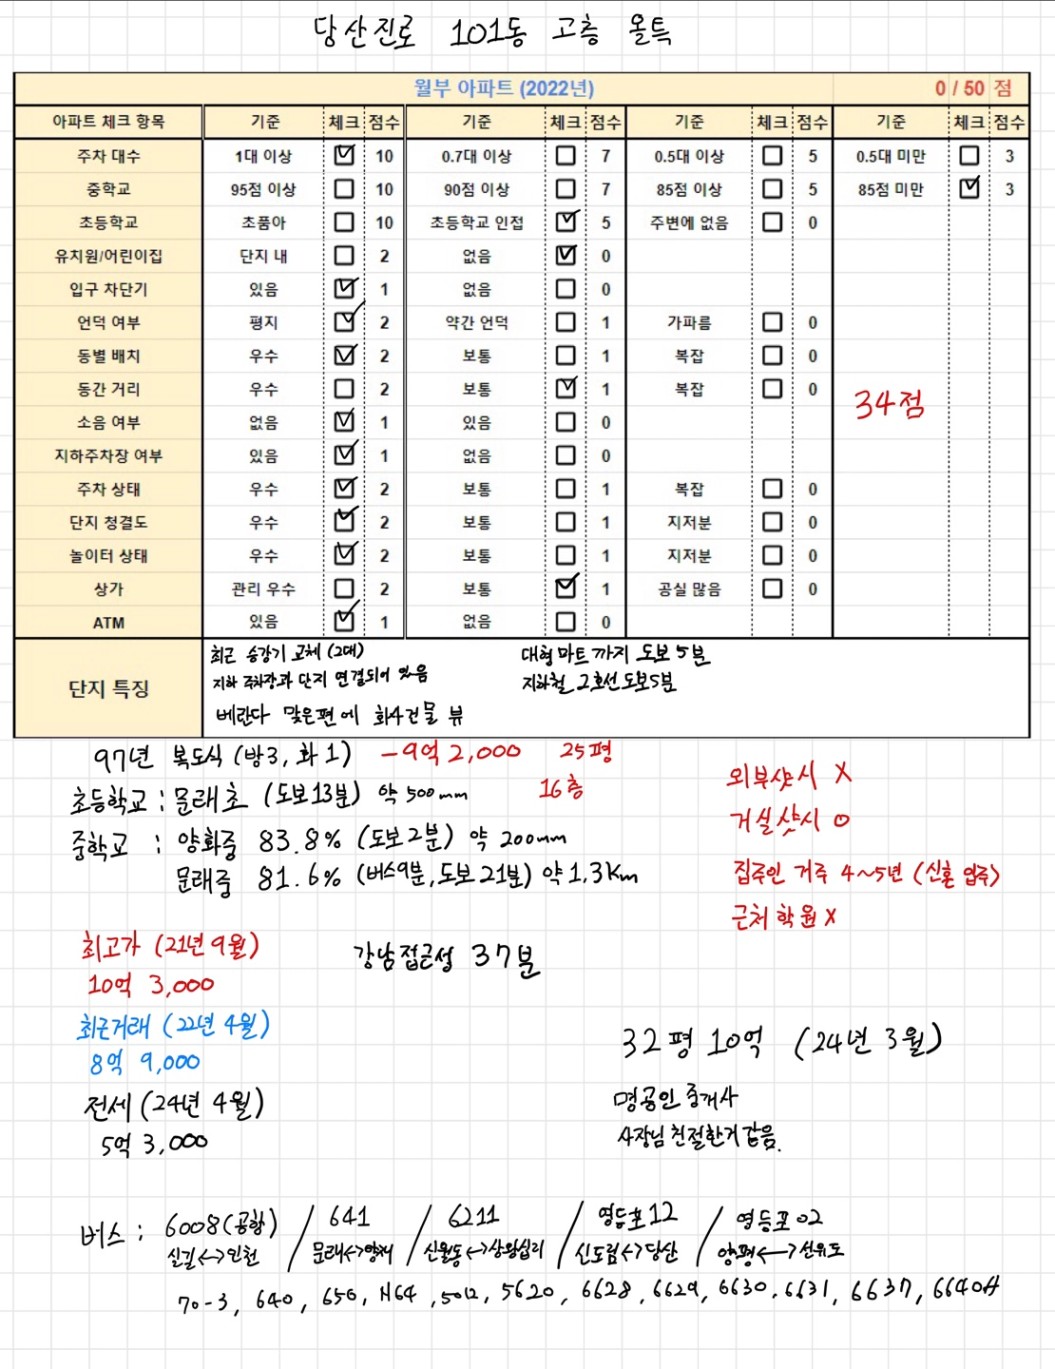 당산진로 101동 고층 올특
월부 아파트 (2022년) 0 / 50 점
아파트 체크 항목 기준 체크 점수 기준 체크 점수 기준 체크 점수 기준 체크 점수
주차 대수 1대 이상 ☑ 10 0.7대 이상 ☐ 7 0.5대 이상 ☐ 5 0.5대 미만 ☐ 3
중학교 95점 이상 ☐ 10 90점 이상 ☐ 7 85점 이상 ☐ 5 85점 미만 ☑ 3
초등학교 초품아 ☐ 10 초등학교 인접 ☑ 5 주변에 없음 ☐ 0
유치원/어린이집 단지 내 ☐ 2 없음 ☑ 0
입구 차단기 있음 ☑ 1 없음 ☐ 0
언덕 여부 평지 ☑ 2 약간 언덕 ☐ 1 가파름 ☐ 0
동별 배치 우수 ☑ 2 보통 ☐ 1 복잡 ☐ 0
동간 거리 우수 ☐ 2 보통 ☑ 1 복잡 ☐ 0
34점
소음 여부 없음 ☑ 1 있음 ☐ 0
지하주차장 여부 있음 ☑ 1 없음 ☐ 0
주차 상태 우수 ☑ 2 보통 ☐ 1 복잡 ☐ 0
단지 청결도 우수 ☑ 2 보통 ☐ 1 지저분 ☐ 0
놀이터 상태 우수 ☑ 2 보통 ☐ 1 지저분 ☐ 0
상가 관리 우수 ☐ 2 보통 ☑ 1 공실 많음 ☐ 0
ATM 있음 ☑ 1 없음 ☐ 0
단지 특징
최근 승강기 교체 (2대) 대형마트까지 도보 5분
지하 주차장과 단지 연결되어 있음 지하철 2호선 도보 5분
베란다 맞은편에 회4건물 뷰
97년 복도식 (방3, 화1) -9억 2,000 25평
초등학교 : 문래초 (도보13분) 약 500mm 16층
중학교 : 양화중 83.8% (도보2분) 약 200mm
문래중 81.6% (버스9분, 도보21분) 약 1.3Km
외부샷시 X
거실샷시 O
집주인 거주 4~5년 (신혼 입주)
근처 학원 X
최고가 (21년 9월)
10억 3,000
강남접근성 37분
최근거래 (22년 4월)
8억 9,000
전세 (24년 4월)
5억 3,000
32평 10억 (24년 3월)
명공인 중개사
사장님 친절한거 같음.
버스 : 6008(공항) / 641 / 6211 / 영등포12 / 영등포02
신길<->인천 / 문래<->양재 / 신월동<->상왕십리 / 신도림<->당산 / 양평<->선유도
70-3, 640, 650, N64, 5012, 5620, 6628, 6629, 6630, 6631, 6637, 6640A